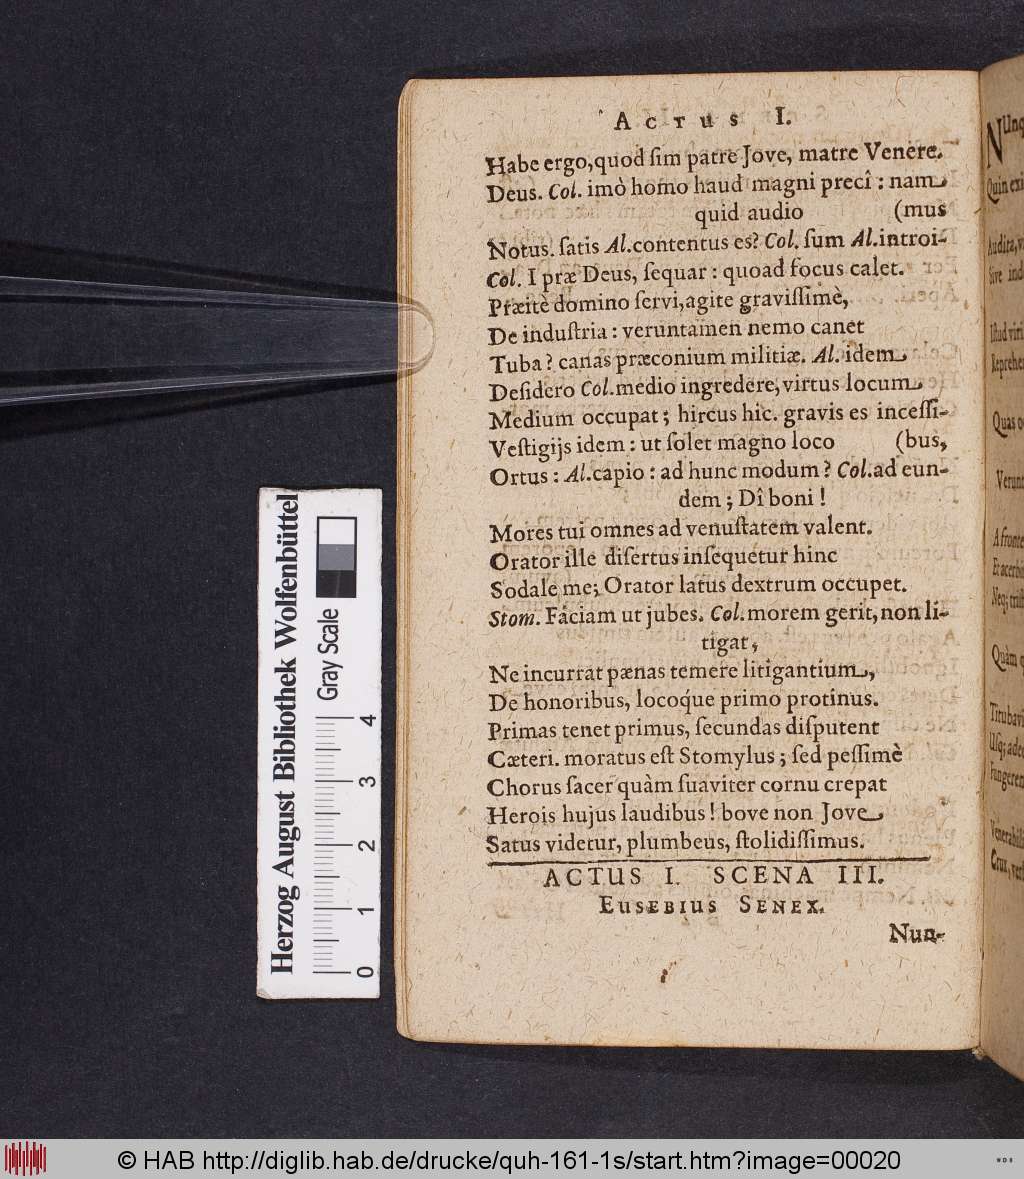 Actus I.
Habe ergo, quod ſim patre Jove, matre Venere.
Deus. Col. imò homo haud magni precî : nam
quid audio (mus
Notus. ſatis Al. contentus es? Col. ſum Al. introi-
Col. I præ Deus, ſequar : quoad focus calet.
Præitè domino ſervi, agite graviſſimè,
De induſtria : veruntamen nemo canet
Tuba? canas præconium militiæ. Al. idem
Deſidero Col. medio ingredere, virtus locum
Medium occupat; hircus hic. gravis es inceſſi-
Veſtigijs idem : ut ſolet magno loco (bus,
Ortus : Al. capio : ad hunc modum? Col. ad eun-
dem; Dî boni!
Mores tui omnes ad venuſtatem valent.
Orator ille diſertus inſequetur hinc
Sodale me; Orator latus dextrum occupet.
Stom. Faciam ut jubes. Col. morem gerit, non li-
tigat,
Ne incurrat pænas temere litigantium,
De honoribus, locoque primo protinus.
Primas tenet primus, ſecundas diſputent
Cæteri. moratus eſt Stomylus; ſed peſſimè
Chorus ſacer quàm ſuaviter cornu crepat
Herois hujus laudibus! bove non Jove
Satus videtur, plumbeus, ſtolidiſſimus.
ACTUS I. SCENA III.
Eusebius Senex.
Nun-
Quin exi
Audita, v
Sive ind
Iſtud viri
Reprehe
Quas o
Verunt
A fronte
Et acerbi
Neq; trib
Quàm q
Titubavi
Uſq; adeo
Fungerem
Venerabili
Crux, verſ
Herzog August Bibliothek Wolfenbüttel
Gray Scale
0 1 2 3 4
© HAB http://diglib.hab.de/drucke/quh-161-1s/start.htm?image=00020